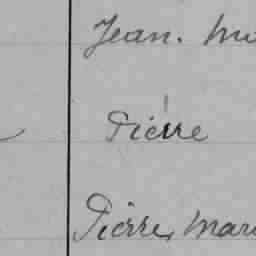 Jean.
Pierre
Pierre, Mar